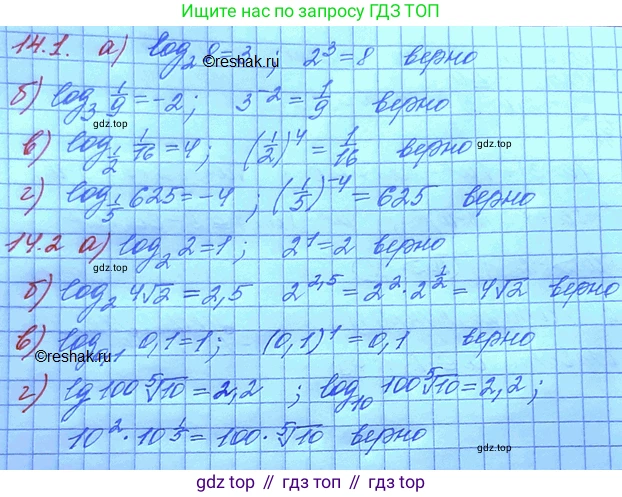 Ищите нас по запросу ГДЗ ТОП
14.1. а) log₂ 8=3; 2³=8 верно
©reshak.ru
б) log₃ 1/9 = -2; 3⁻² = 1/9 верно
gdz.top
в) log_{1/2} 1/16 = 4; (1/2)⁴ = 1/16 верно
gdz.top
г) log_{1/5} 625 = -4; (1/5)⁻⁴ = 625 верно
14.2 а) log₂ 2=1; 2¹=2 верно
gdz.top
б) log₂ 4√2 = 2,5 2^{2,5} = 2²·2^{1/2} = 4√2 верно
в) log_{0,1} 0,1=1; (0,1)¹=0,1 верно
©reshak.ru
г) lg 100 ⁵√10 = 2,2; log₁₀ 100 ⁵√10 = 2,2;
10²·10^{1/5} = 100·⁵√10 верно
gdz.top
gdz.top // гдз.топ // гдз.top